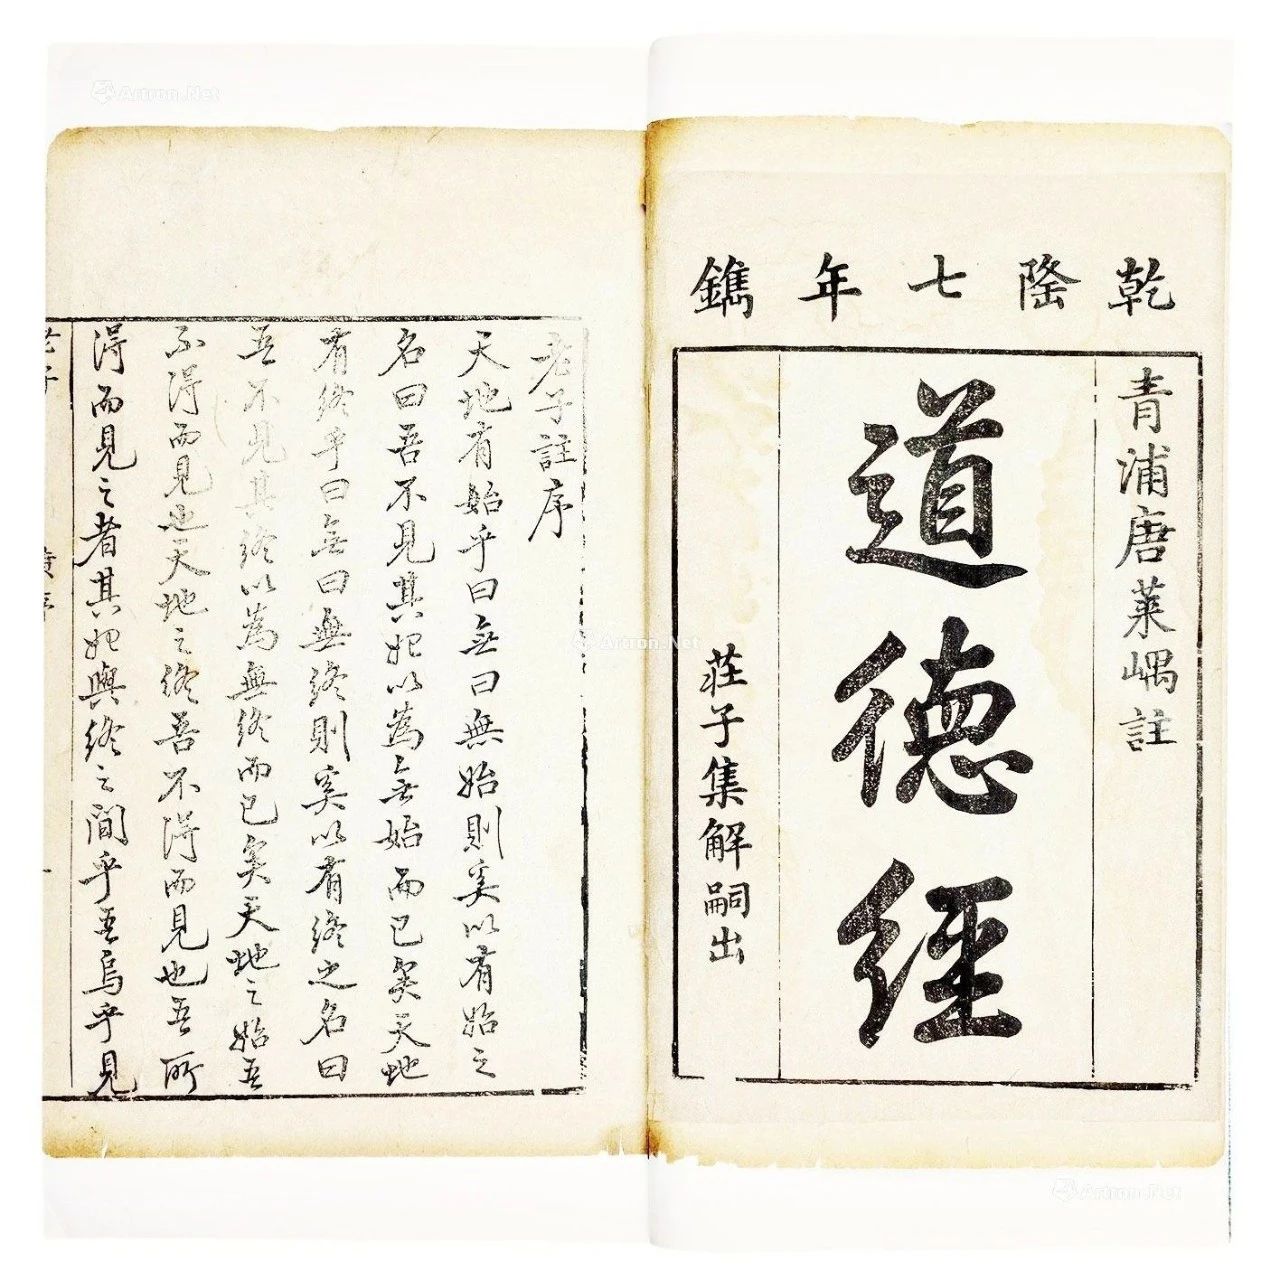 乾隆七年鐫
青浦唐萊嵎註
道德經
莊子集解嗣出
老子註序
天地有始乎曰无曰無始則奚以有始之
名曰吾不見其始以為无始而已矣天地
有終乎曰无曰無終則奚以有終之名曰
吾不見其終以為無終而已矣天地之始吾
不得而見也天地之終吾不得而見也吾所
得而見之者其始與終之間乎吾烏乎見
老子
Artron.Net
Artron.Net
Artron.Net